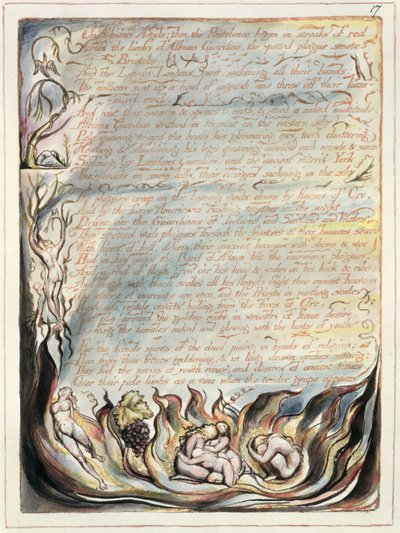 17
On Albions Angels; then the Pestilence began in streaks of red
Across the limbs of Albions Guardian, the spotted plague smote
Bristols
And the Leprous Londons Spirit, sickening all their bands:
The millions sent up a howl of anguish and threw off their ham-
-merd mail,
And cast their swords & spears to earth, & stood a naked multitude.
Albions Guardian writhed in torment on the eastern sky
Pale quivring toward the brain his glimmering eyes, teeth chattering
Howling & shuddering his legs quivering; convuls'd each muscle & sinew
Sick'ning lay Londons Guardian, and the ancient miter'd York
Their heads on snowy hills, their ensigns sick'ning in the sky
The plagues creep on the burning winds driven by flames of Orc,
And by the fierce Americans rushing together in the night
Driven o'er the Guardians of Ireland and Scotland and Wales
They spotted with plagues forsook the frontiers & their banners seard
With fires of hell, deform their ancient heavens with shame & woe.
Hid in his caves the Bard of Albion felt the enormous plagues.
And a cowl of flesh grew o'er his head & scales on his back & ribs;
And rough with black scales all his Angels fright their ancient heavens
The doors of marriage are open, and the Priests in rustling scales
Rush into reptile coverts, hiding from the fires of Orc,
That play around the golden roofs in wreaths of fierce desire,
Leaving the females naked and glowing with the lusts of youth
For the female spirits of the dead pining in bonds of religion;
Run from their fetters reddening, & in long drawn arches sitting:
They feel the nerves of youth renew, and desires of ancient times,
Over their pale limbs as a vine when the tender grape appears